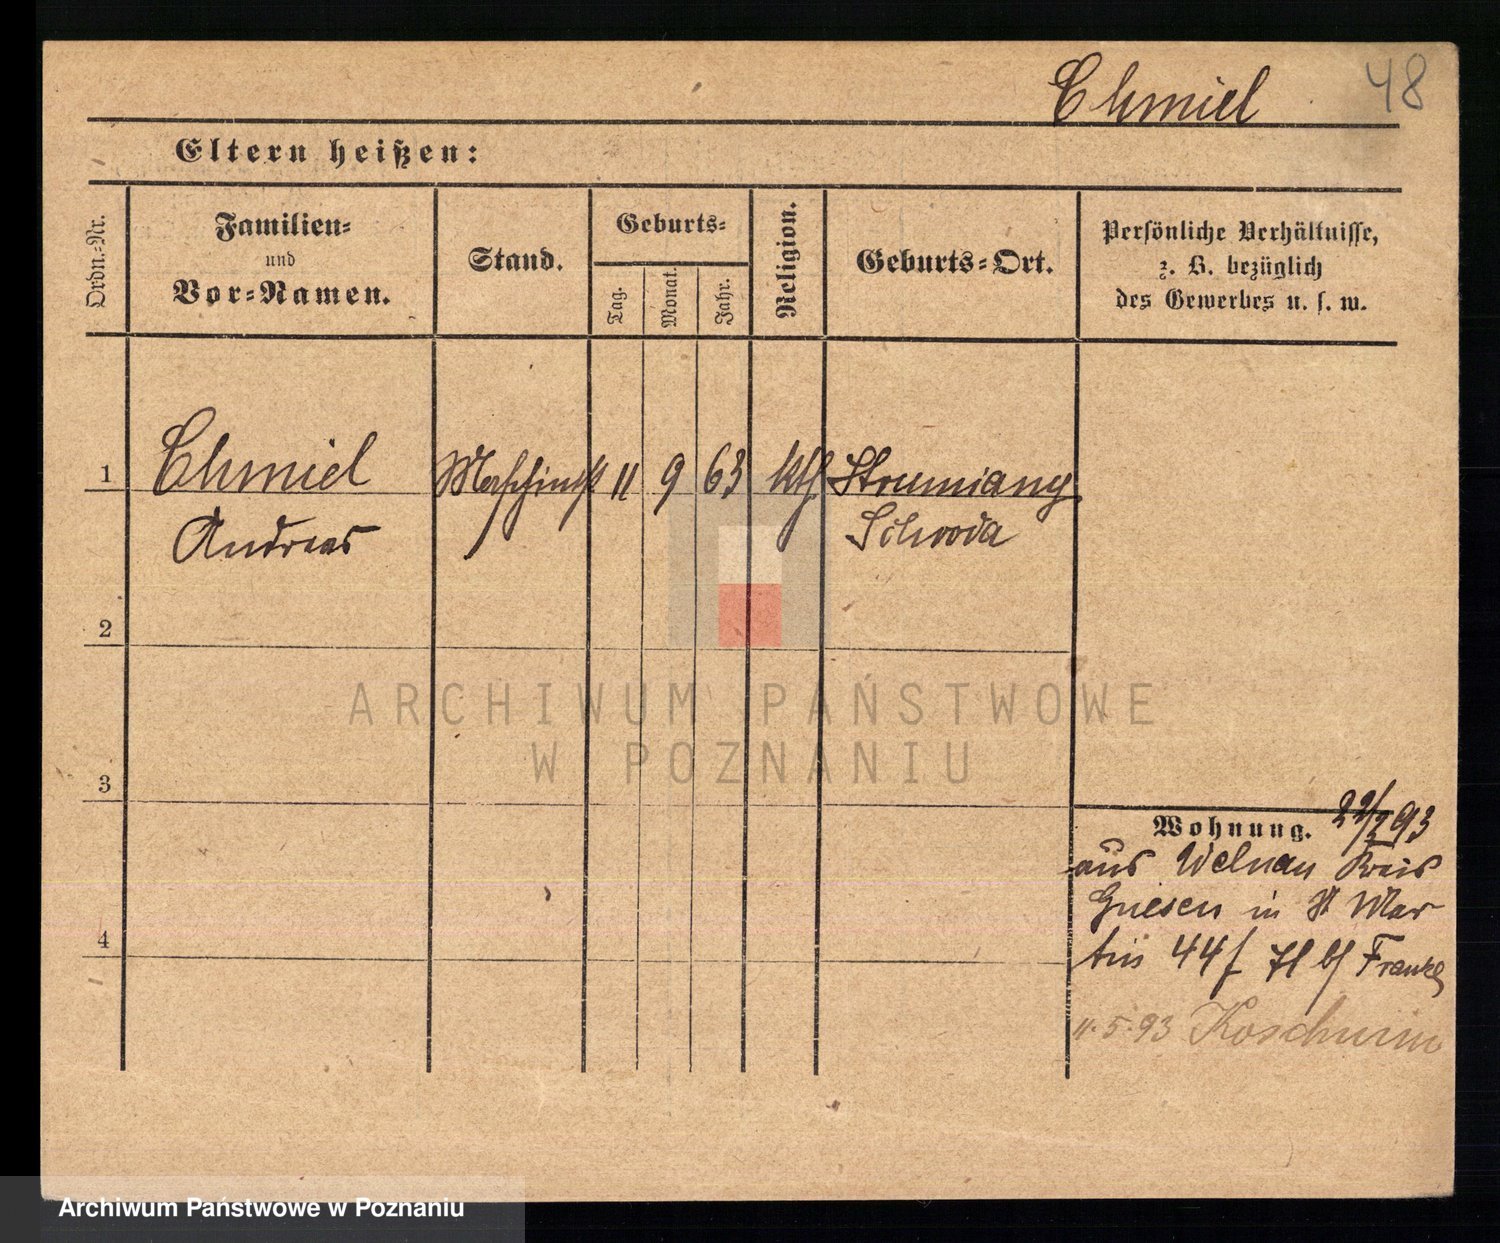 Chmiel 48
Eltern heißen:
Ordn.-Nr.
Familien-
und
Vor-Namen.
Stand.
Geburts-
Tag.
Monat.
Jahr.
Religion.
Geburts-Ort.
Persönliche Verhältnisse,
z. B. bezüglich
des Gewerbes u. s. w.
1 Chmiel 11 9 63 kth Strumiany
Andreas Schroda
2
3
4
Wohnung. 22/2 93
aus Welnau Kreis
Gnesen in St Mar
tin 44 bj Franke
11.5.93 Koschmin
ARCHIWUM PAŃSTWOWE
W POZNANIU
Archiwum Państwowe w Poznaniu